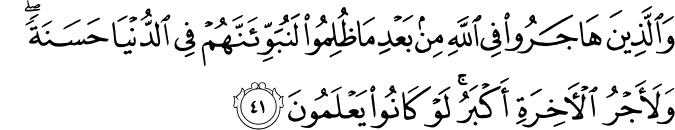 وَٱلَّذِينَ هَاجَرُواْ فِي ٱللَّهِ مِنۢ بَعۡدِ مَا ظُلِمُواْ لَنُبَوِّئَنَّهُمۡ فِي ٱلدُّنۡيَا حَسَنَةٗۖ
وَلَأَجۡرُ ٱلۡأٓخِرَةِ أَكۡبَرُۚ لَوۡ كَانُواْ يَعۡلَمُونَ ٤١